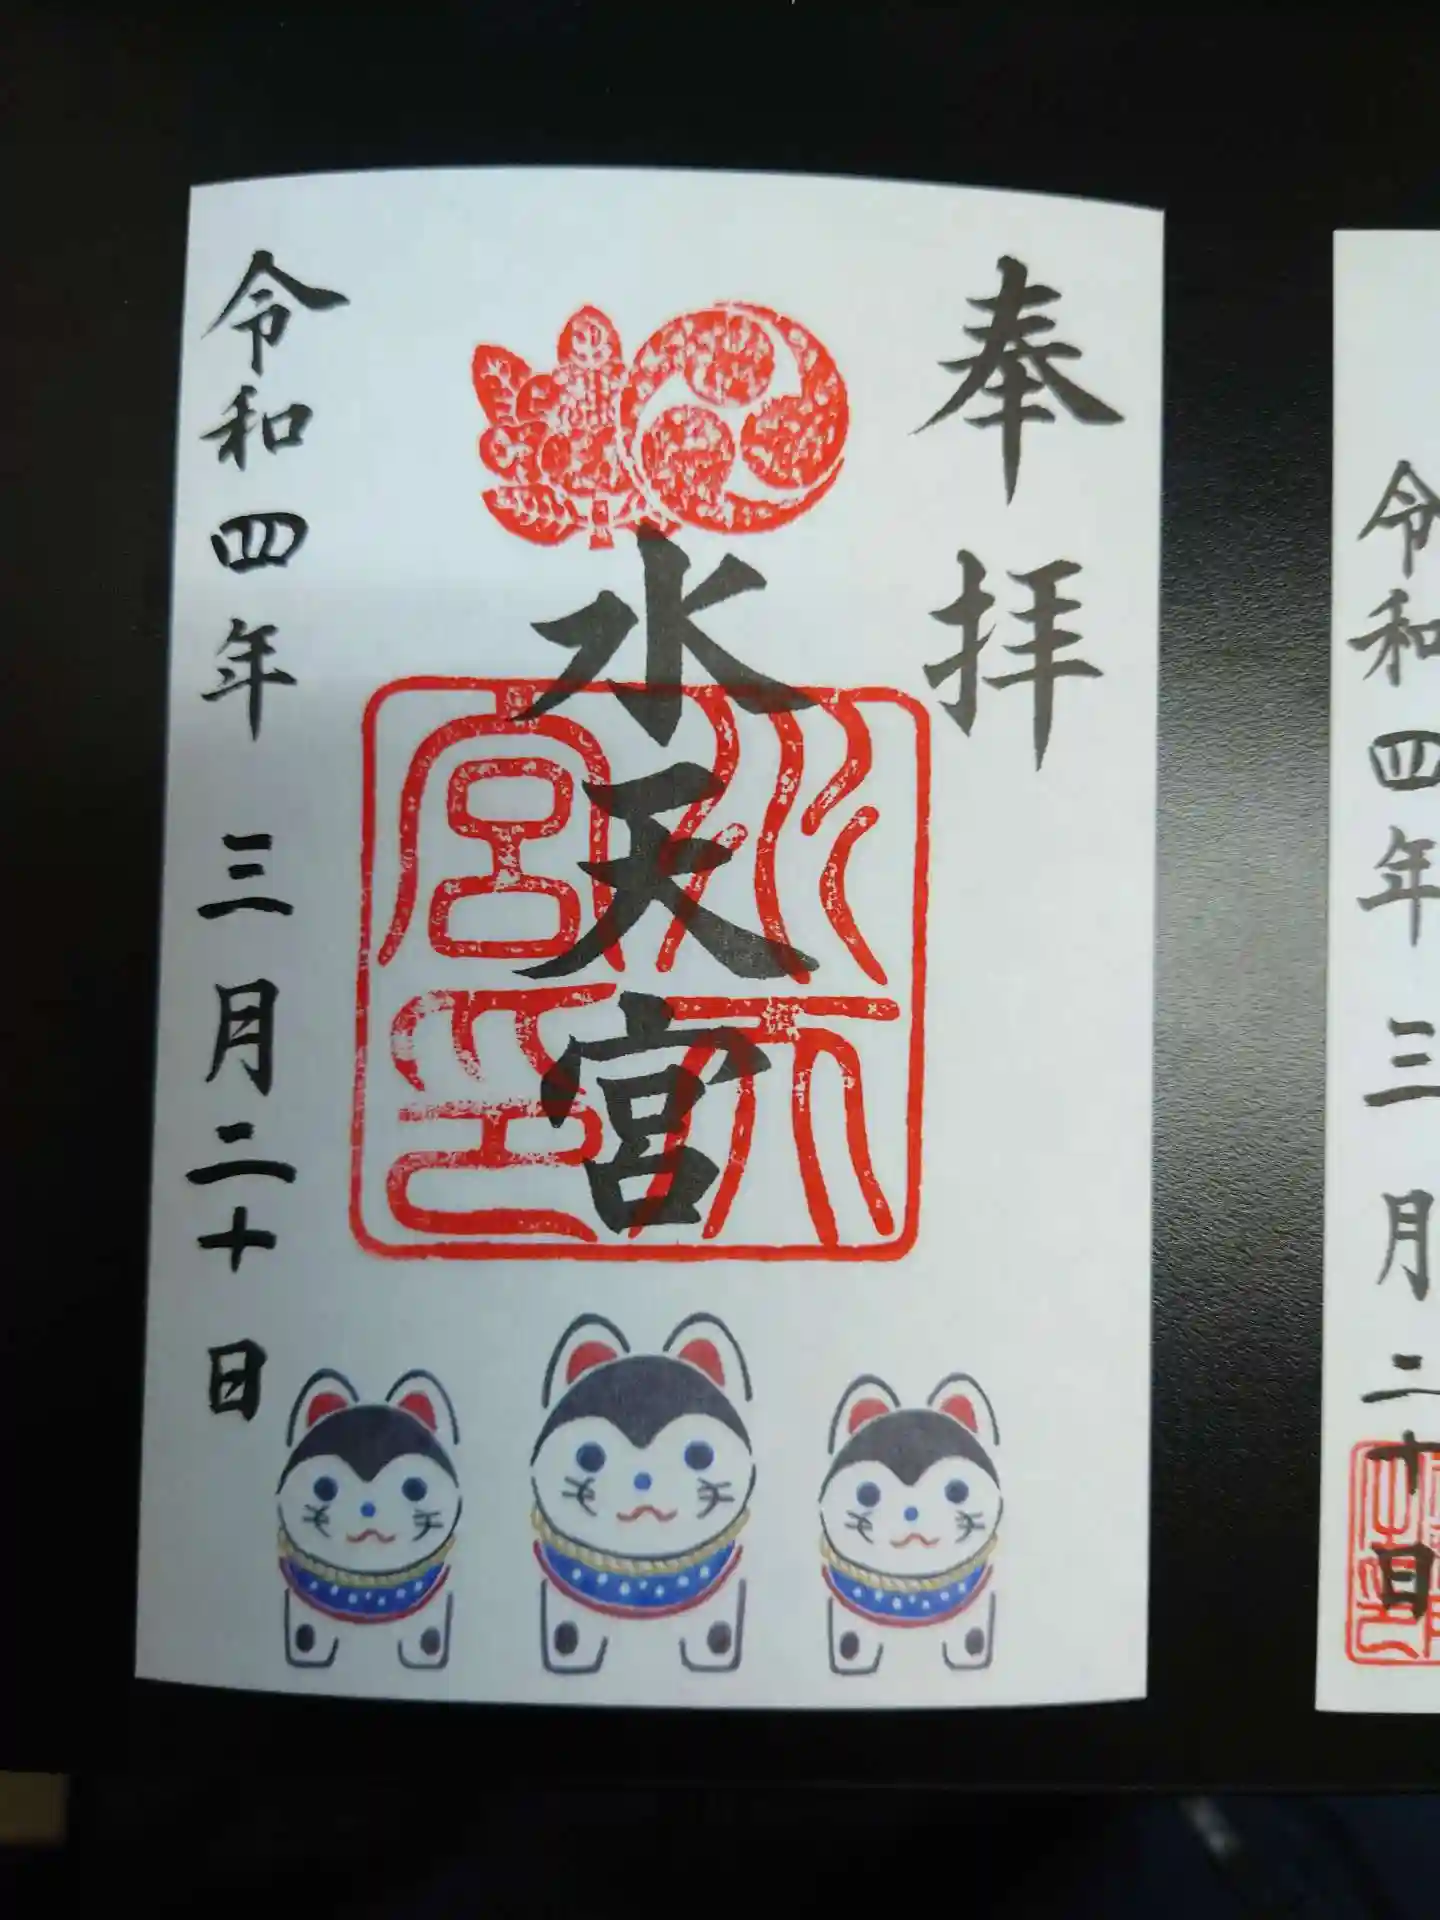 奉拝
水天宮
水天宮印
令和四年 三月二十日
令和四年 三月二十日